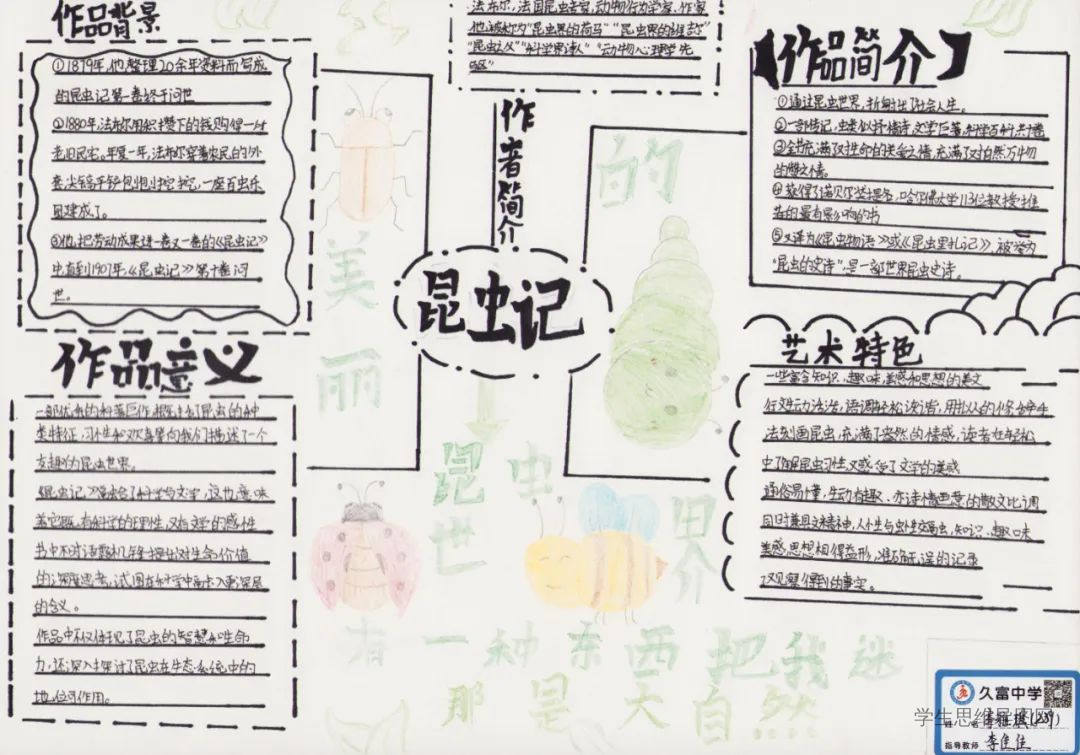 作品背景
①1879年,他整理20余年资料而写成
的昆虫记第一卷终于问世
②1880年,法布尔用积攒下的钱购得一
老旧民宅。年复一年,法布尔穿着农民的
一座百虫乐
园建成了。
③他把劳动成果进一卷又一卷的《昆虫记》
中直到1907年《昆虫记》第十卷问
世。
作品意义
一部优秀的科普巨作
类特征,习性和
有趣的昆虫世界。
《昆虫记》融合了科学与文学,这也意味
着它既有科学的理性,又有文学的感性
书中不时语
的深度思考,试图在科学中
的含义。
作品中不仅体现了昆虫的智慧和生命
力,还深入探讨了昆虫在生态系统中的
地位和作用。
法布尔,法国昆虫学家,动物行为学家,作家
他被称为"昆虫界的荷马""昆虫界的维吉尔"
"昆虫之父""科学界诗人""动物心理学先
驱"
作者简介
昆虫记
【作品简介】
①通过昆虫世界,折射出了社会人生。
②一部传记,虫类似抒情诗,文学巨著,科学百科
③全书充满了对生命的关爱之情,充满了对自然万物
的赞美之情。
④获得了诺贝尔奖提名,哈佛大学113位教授推
荐的最有影响的书
⑤又译为《昆虫物语》或《昆虫学札记》,被誉为
"昆虫的史诗",是一部世界昆虫史诗。
艺术特色
一些富含知识、趣味,美感和思想的美文
行文生动活泼,语调轻松诙谐,用拟人的修辞手
法刻画昆虫,充满了盎然的情感,读者在轻松
中了解昆虫习性又感受了文学的美感
通俗易懂,生动有趣、亦诗情画意的散文比调
同时兼具文 精神,人性与虫性交融,知识、趣味
美感思想相得益彰,准确无误的记录
了观察得到的事实。
美丽的
昆虫世界
有一种东西把我迷
那是大自然
久富中学
学生思维导图网
姓名
指导教师 李佳佳